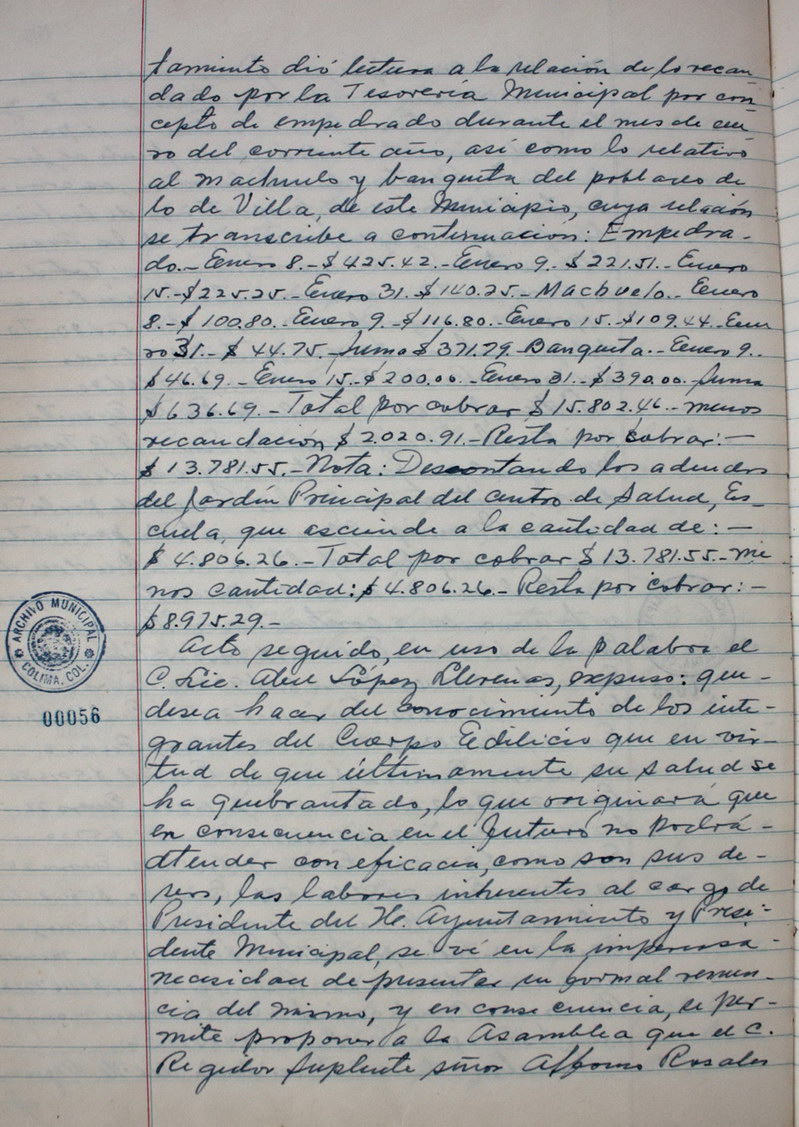 tamiento dió lectura á la relación de lo recau
dado por la Tesorería Municipal por con
cepto de empedrado durante el mes de ene
ro del corriente año, así como lo relativo
al machuelo y banqueta del poblado de
lo de Villa, de este Municipio, cuya relación
se transcribe a continuacion: Empedra-
do.- Enero 8.- $425.42.- Enero 9.- $221.51.- Enero
15.- $225.25.- Enero 31.- $140.25.- Machuelo.- Enero
8.- $100.80.- Enero 9.- $116.80.- Enero 15.- $109.44.- Ene
ro 31.- $44.75.- Suma $371.79. Banqueta.- Enero 9.-
$46.69.- Enero 15.- $200.00.- Enero 31.- $390.00. Suma
$636.69.- Total por cobrar $15.802.46.- menos
recaudación $2.020.91.- Resta por cobrar:-
$13.781.55.- Nota: Descontando los adeudos
del Jardín Principal del centro de Salud, Es-
cuela, que asciende a la cantidad de:-
$4.806.26.- Total por cobrar $13.781.55.- me
nos cantidad: $4.806.26.- Resta por cobrar:-
$8.975.29.-
Acto seguido, en uso de la palabra el
C. Lic. Abel López Llerenas, expuso: que-
desea hacer del conocimiento de los inte-
grantes del Cuerpo Edilicio que en vir-
tud de que últimamente su salud se
ha quebrantado, lo que originará que
en consecuencia en el futuro no podrá-
atender con eficacia, como son sus de-
seos, las labores inherentes al cargo de
Presidente del H. Ayuntamiento y Presi-
dente Municipal, se vé en la imperiosa-
necesidad de presentar su formal renun-
cia del mismo, y en consecuencia, se per-
mite proponer a la Asamblea que el C.
Regidor Suplente señor Alfonso Rosales
ARCHIVO MUNICIPAL
COLIMA, COL.
00056